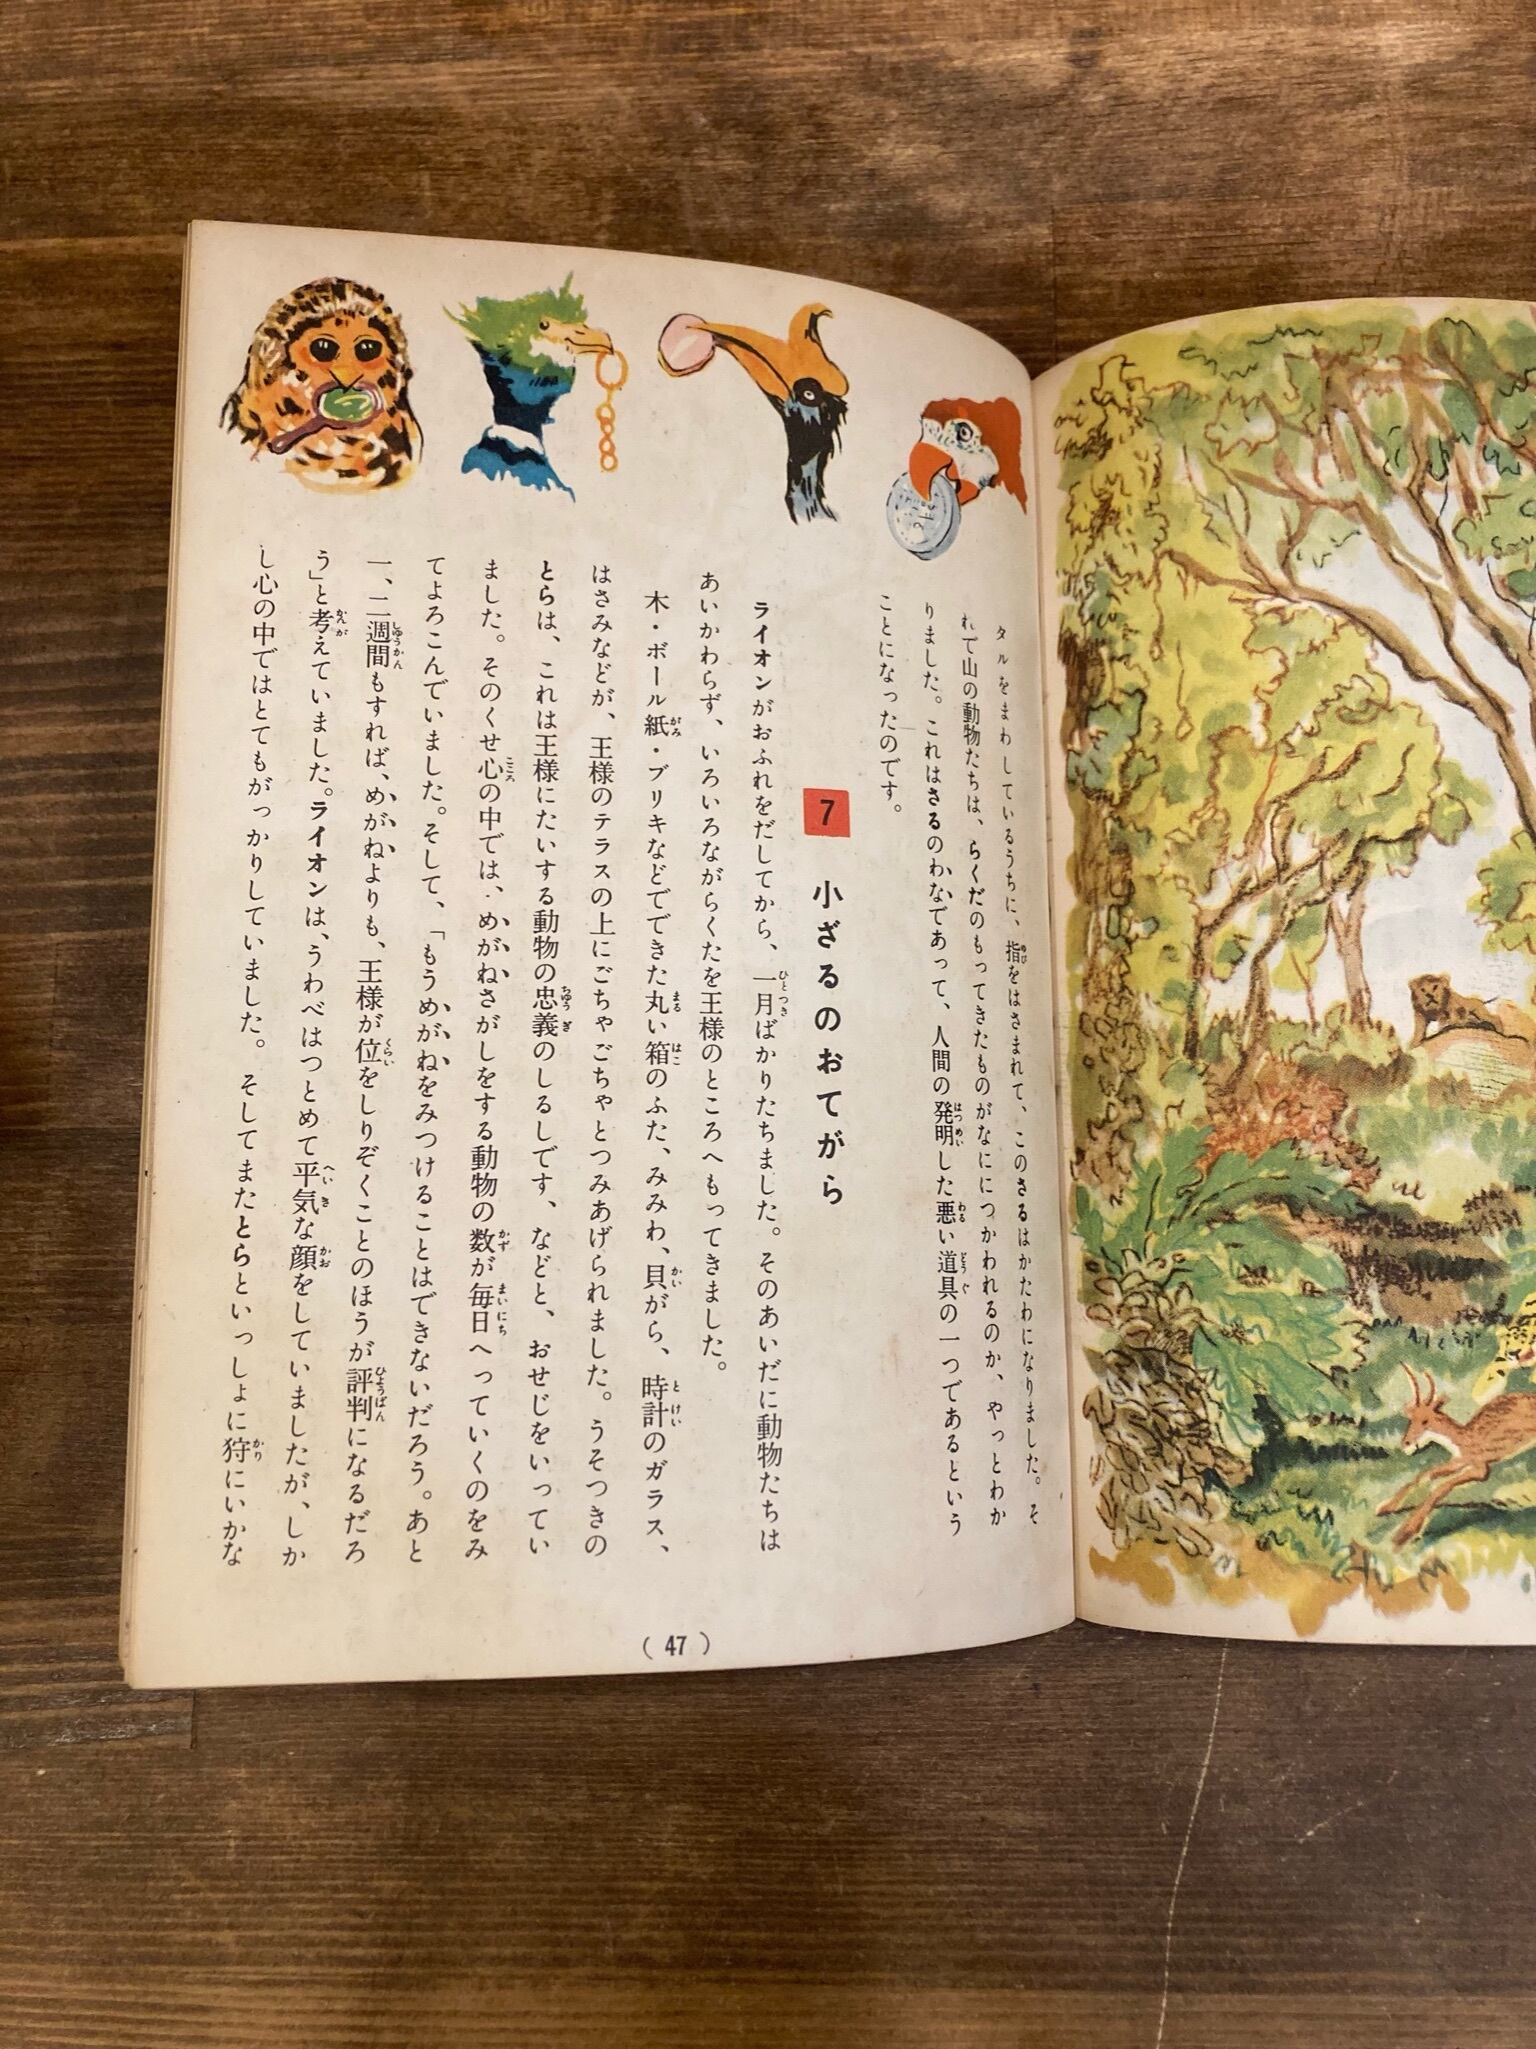 タルをまわしているうちに、指をはさまれて、このさるはかたわになりました。そ
れで山の動物たちは、らくだのもってきたものがなににつかわれるのか、やっとわか
りました。これはさるのわなであって、人間の発明した悪い道具の一つであるという
ことになったのです。
7 小ざるのおてがら
ライオンがおふれをだしてから、一月ばかりたちました。そのあいだに動物たちは
あいかわらず、いろいろながらくたを王様のところへもってきました。
木・ボール紙・ブリキなどでできた丸い箱のふた、みみわ、貝がら、時計のガラス、
はさみなどが、王様のテラスの上にごちゃごちゃとつみあげられました。うそつきの
とらは、これは王様にたいする動物の忠義のしるしです、などと、おせじをいってい
ました。そのくせ心の中では、めがねさがしをする動物の数が毎日へっていくのをみ
てよろこんでいました。そして、「もうめがねをみつけることはできないだろう。あと
一、二週間もすれば、めがねよりも、王様が位をしりぞくことのほうが評判になるだろ
う」と考えていました。ライオンは、うわべはつとめて平気な顔をしていましたが、しか
し心の中ではとてもがっかりしていました。そしてまたとらといっしょに狩にいかな
(47)